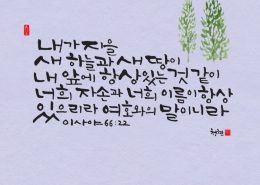 내가 지을
새 하늘과 새 땅이
내 앞에 항상 있는 것 같이
너희 자손과 너희 이름이 항상
있으리라 여호와의 말이니라
이사야 66:22